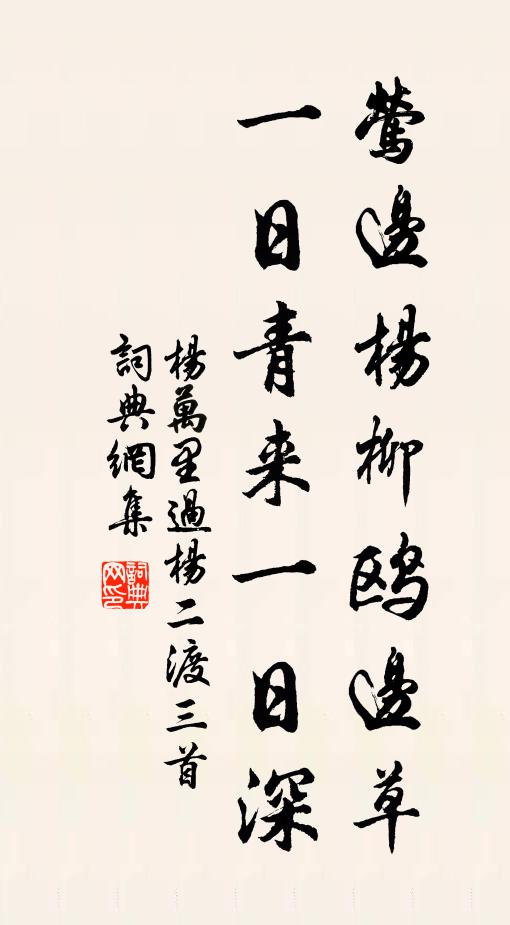 鶯邊楊柳鷗邊草
一日青来一日深
楊萬里過楊二渡三首
詞典網集
詞典
网印